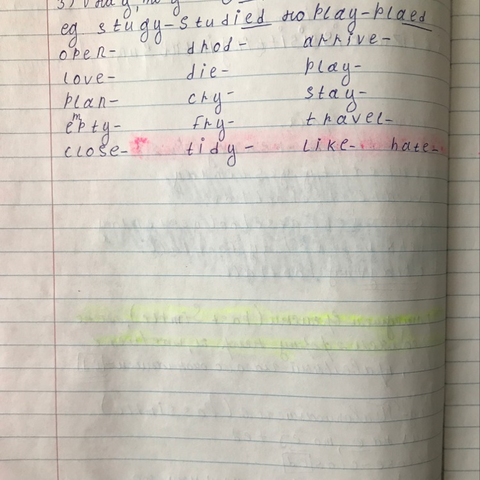 eg stugy-studied но play-plaed
open- drod- arrive-
love- die- play-
plan- cry- stay-
empty- fry- travel-
close- tidy- like- hate-